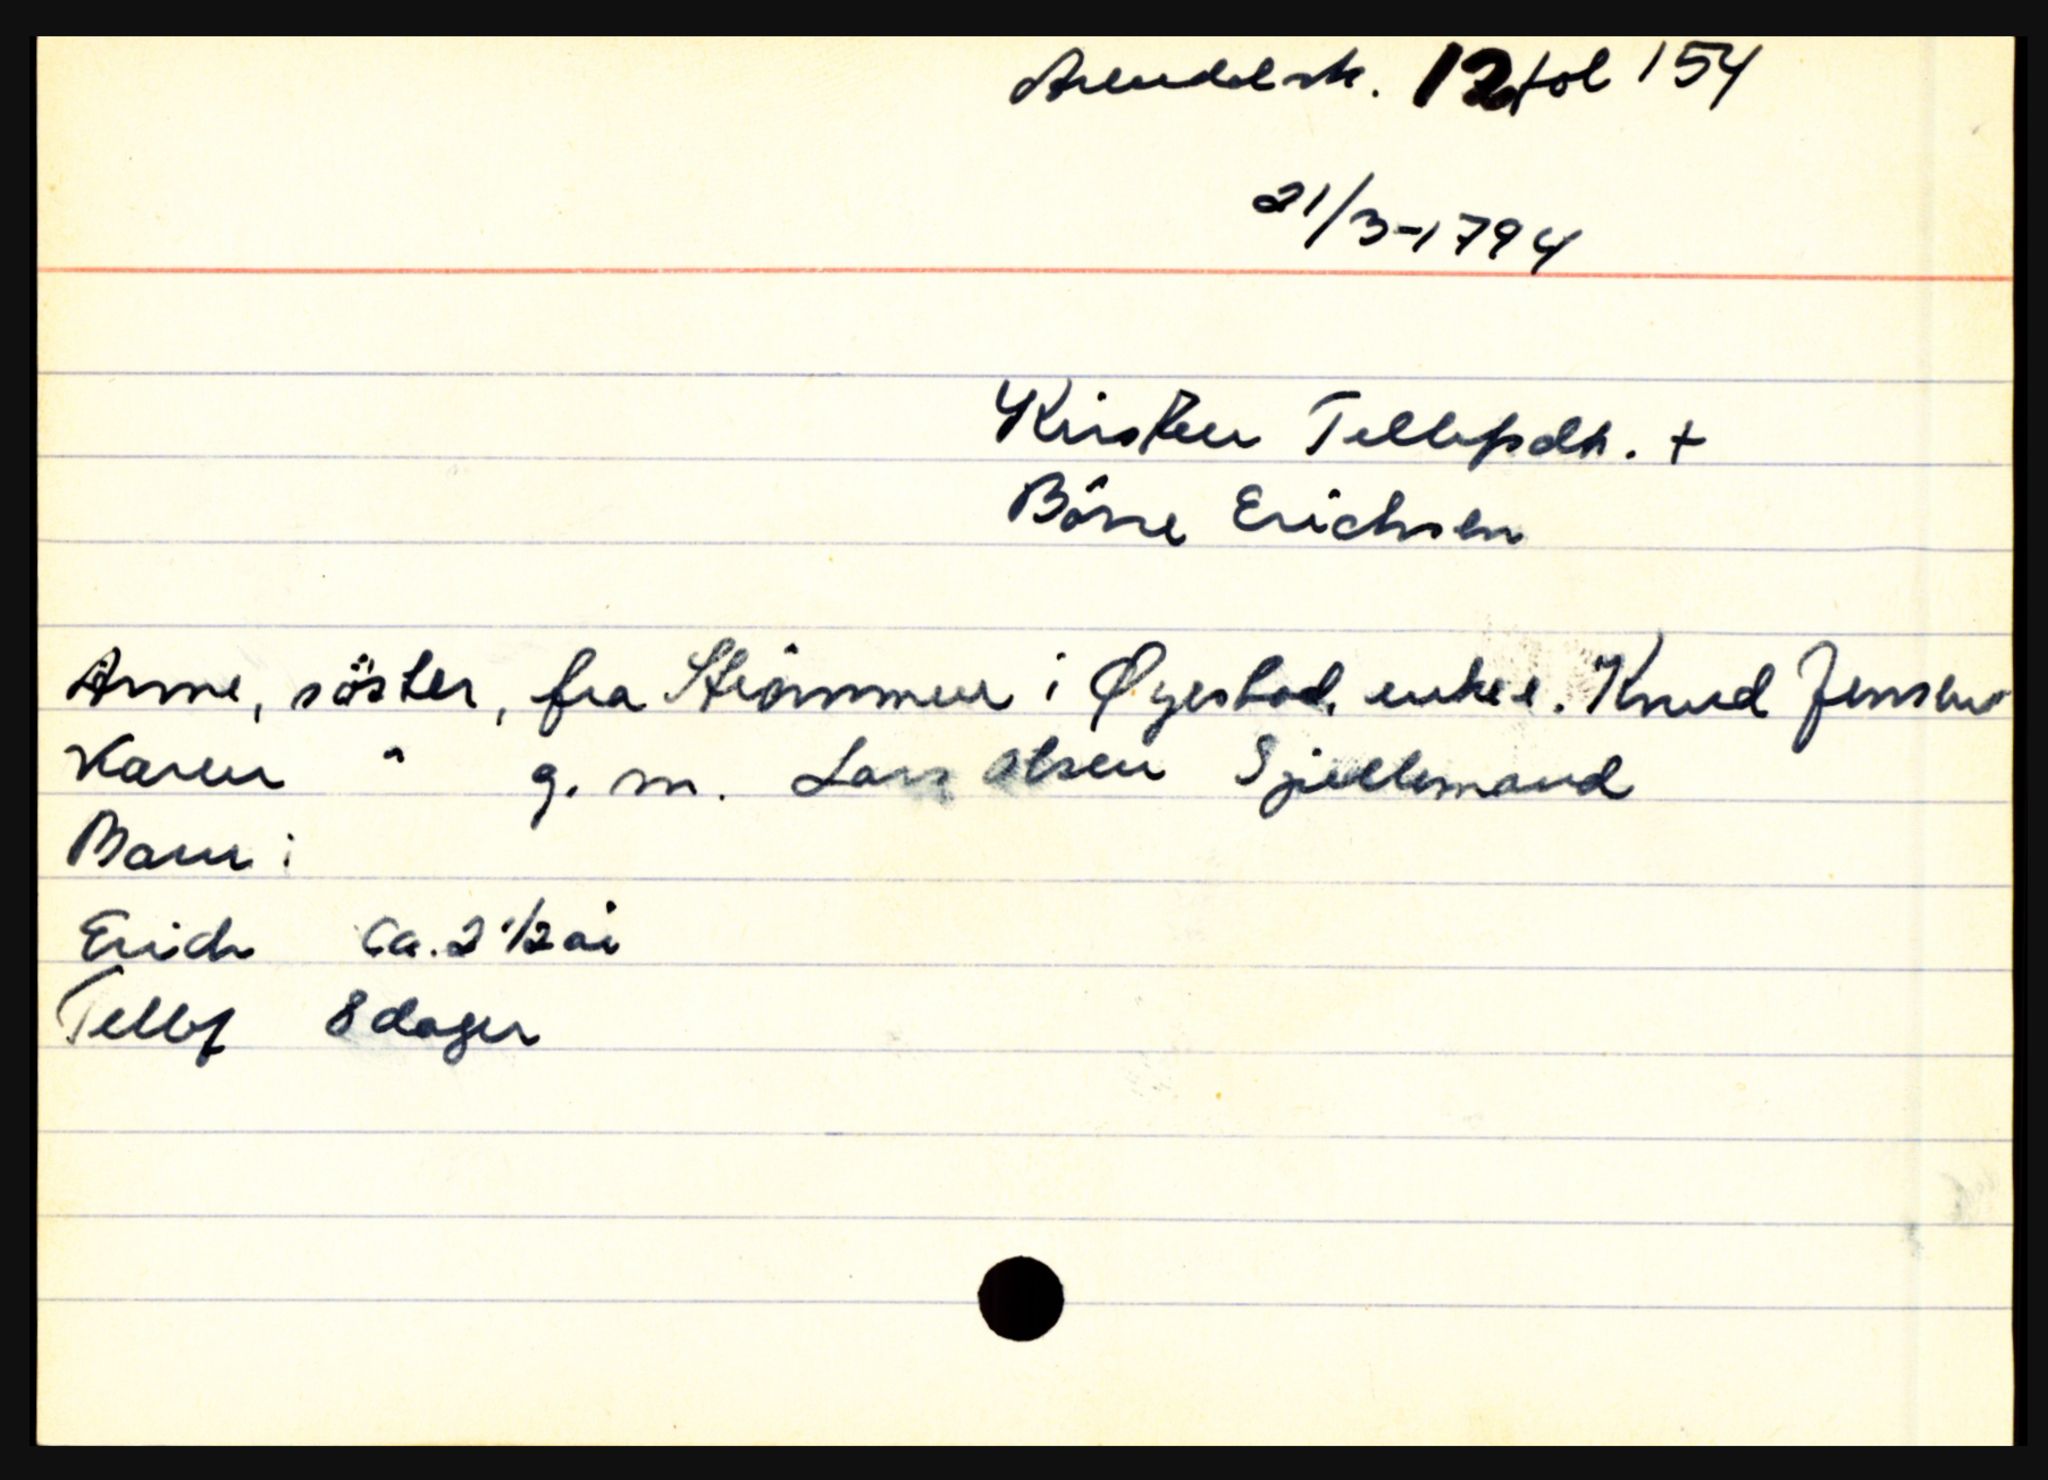 Arendal sk. 12 fol 154
21/3-1794
Kirsten Tellefsdh. +
Börre Erichsen
Anne, söster, fra Strömmen i Øyestad, enke e. Knud Jensen
Karen " g. m. Lars Olsen Sjellemand
Barn:
Erich ca. 2 1/2 år
Tellef 8 dager